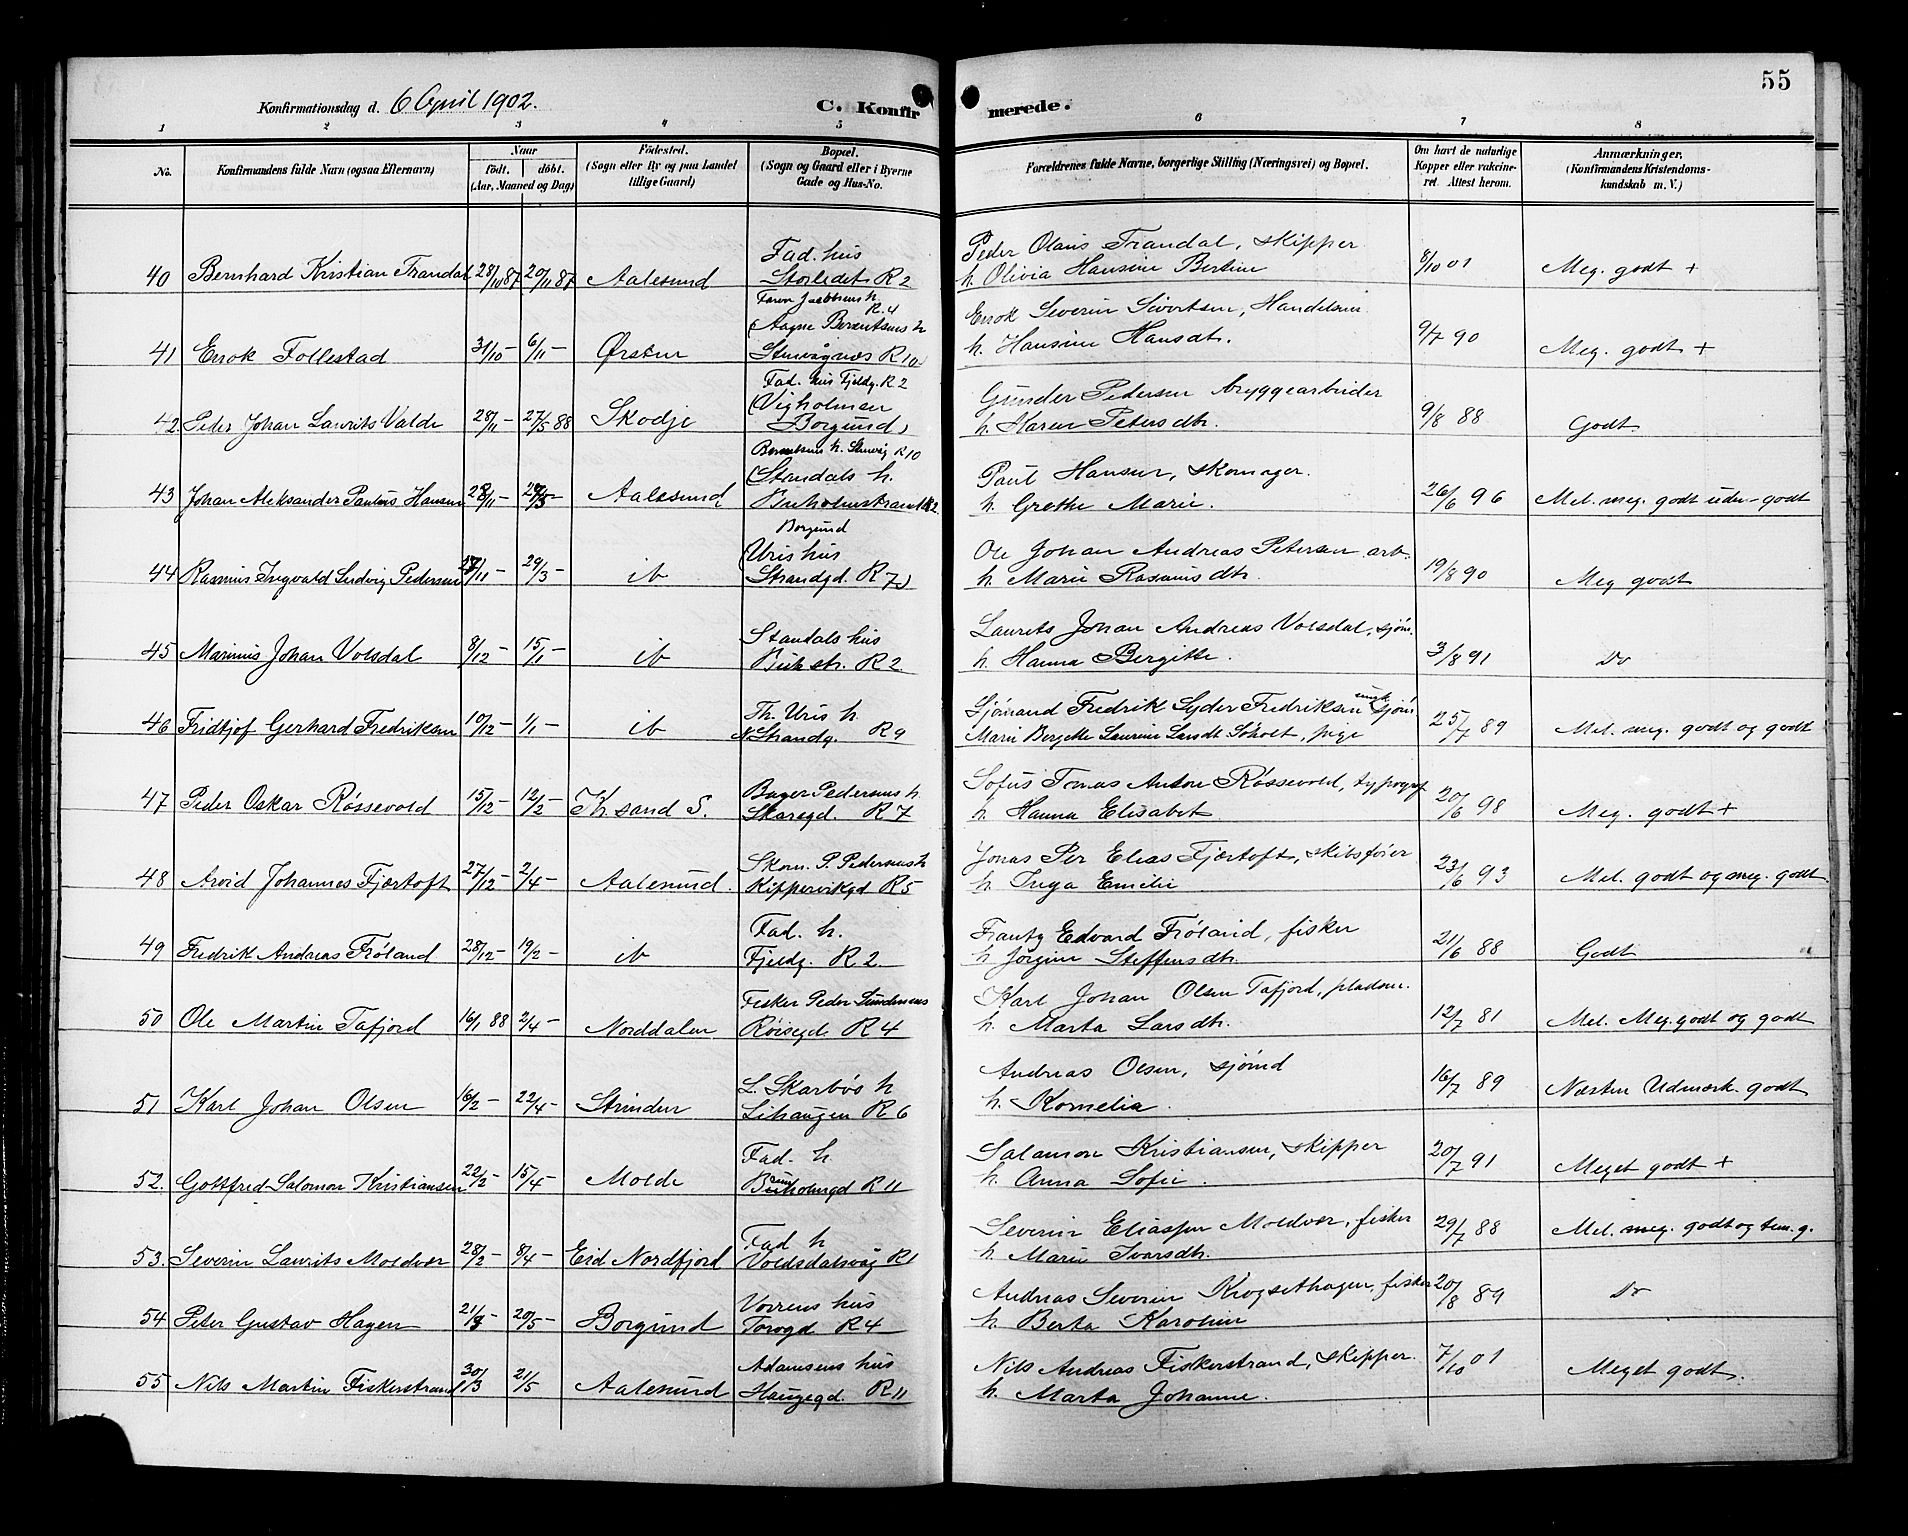 55
Konfirmationsdag d. 6 April 1902.
C. Konfirmerede.
1 2 3 4 5 6 7 8
No.
Konfirmandens fulde Navn (ogsaa Efternavn)
Naar
födt. döbt.
(Aar, Maaned og Dag)
Födested.
(Sogn eller By og paa Landet
tillige Gaard)
Bopæl.
(Sogn og Gaard eller i Byerne
Gade og Hus-No.
Forældrenes fulde Navne, borgerlige Stilling (Næringsvei) og Bopæl.
Om havt de naturlige
Kopper eller vakcine-
ret. Attest herom.
Anmærkninger.
(Konfirmandens Kristendoms-
kundskab m. V.)
Fad. hus
Peder Olaus Trandal, skipper
40 Bernhard Kristian Trandal 28/10 87 20/11 87 Aalesund Storledet R 2 h. Olivia Hansine Bertine 8/10 01 Meg. godt +
R. 4
Enok Severin Sivertsen, Handelsm.
41 Enok Follestad 31/10 - 6/11 - Ørsten R 10) h. Hansine Hansdt. 9/7 90 Meg. godt +
Fad. hus Fjeldg. R 2
(Vigholmen
Gunder Pedersen bryggearbeider
42. Peder Johan Laurits Valde 28/11 - 27/5 88 Skodje Borgund) h. Karen Petersdtr. 9/8 88 Godt.
R 10
(Standals h.
Paul Hansen, skomager.
43 Johan Aleksander Paulus Hansen Aalesund h. Grethe Marie. 26/6 96 Mel. meg. godt uden - godt
Borgund
(Uris hus
Ole Johan Andreas Petersen arb.
44 Rasmus Ingvald Ludvig Pedersen 29/3 - ib Strandgd. R 7) h. Marie Rasmusdtr. 19/8 90 Meg godt
Standals hus
Laurits Johan Andreas Volsdal, sjøm.
45 Marinus Johan Volsdal 8/12 - 15/1 - ib Buh str. R 2 h. Hanna Bergitte. 3/8 91 Do
Th. Uris h
Sjømand Fredrik Lyder Fredriksen ungk. sjøm
46 Fridtjof Gerhard Fredriksen 10/12 - 1/1 - ib N Strandg. R 9 Marie Bergitte Laurine Larsdt Søholt, pige 25/7 89 Mel. meg. godt og godt
Bager Pedersens h.
Sofus Tomas Anton Røssevold, typograf
47 Peder Oskar Røssevold 15/12 - 12/2 - Kh.sand S. Skaregd. R 7 h Hanna Elisabet 20/6 98 Meg. godt +
Skom. P. Pedersens h
Jonas Per Elias Fjærtoft, skibsfører
48 Arvid Johannes Fjærtoft 27/12 - 2/4 - Aalesund. Kippervikgd R 5 h. Inga Emilie 23/6 93 Mel. godt og meg. godt.
Fad. h.
Frantz Edvard Frøland, fisker
49 Fredrik Andreas Frøland 28/12 - 19/2 - ib Fjeldg. R 2 h. Jørgine Steffensdtr. 21/6 88 Godt
Fisker Peder
Karl Johan Olsen Tafjord, pladsm.
50 Ole Martin Tafjord 16/1 88 2/4 - Norddalen Røisegd R 4 h. Marta Larsdtr. 12/7 81 Mel. Meg. godt og godt
L. Skarbøs h
Andreas Olsen, sjømd
51 Karl Johan Olsen 16/2 - 22/4 - Strinden Lihaugen R 6 h. Kornelia. 16/7 89 Næsten Udmærk. godt
Fad. h
Salamon Kristiansen, skipper
52. Gottfred Salomon Kristiansen 22/2 - 15/4 - Molde R 11 h. Anna Sofie. 20/7 91 Meget godt +
Fad h
Severin Eliassen Moldvær, fisker
53. Severin Laurits Moldvær 28/2 - 8/4 - Eid Nordfjord Voldsdalsvåg R 1 h. Marie Ivarsdtr. 29/7 88 Mel. meg. godt og tem. g.
Vorrens hus
Andreas Severin Krogsethagen, fisker
54 Peter Gustav Hagen 21/3 - 20/5 - Borgund Torvgd R 4 h. Berta Karoline 20/8 89 Do
Adamsens hus
Nils Andreas Fiskerstrand, skipper.
55 Nils Martin Fiskerstrand 30/3 21/5 - Aalesund Haugegd. R 11 h. Marta Johanne. 7/10 01 Meget godt.